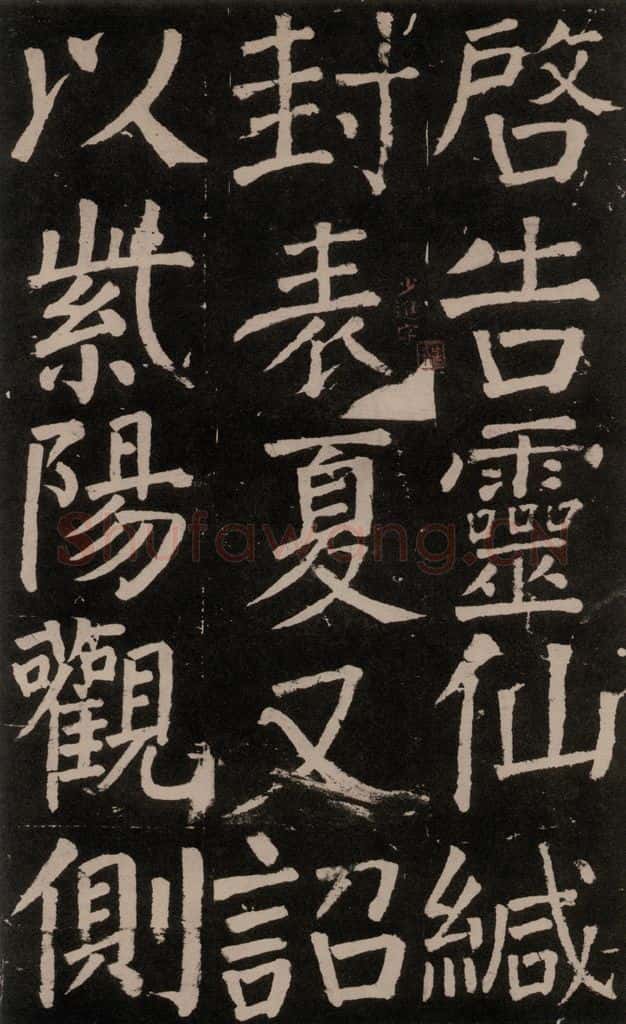 啓告靈仙緘
封表夏又詔
以紫陽觀側
少淮字
Shufawang.CN